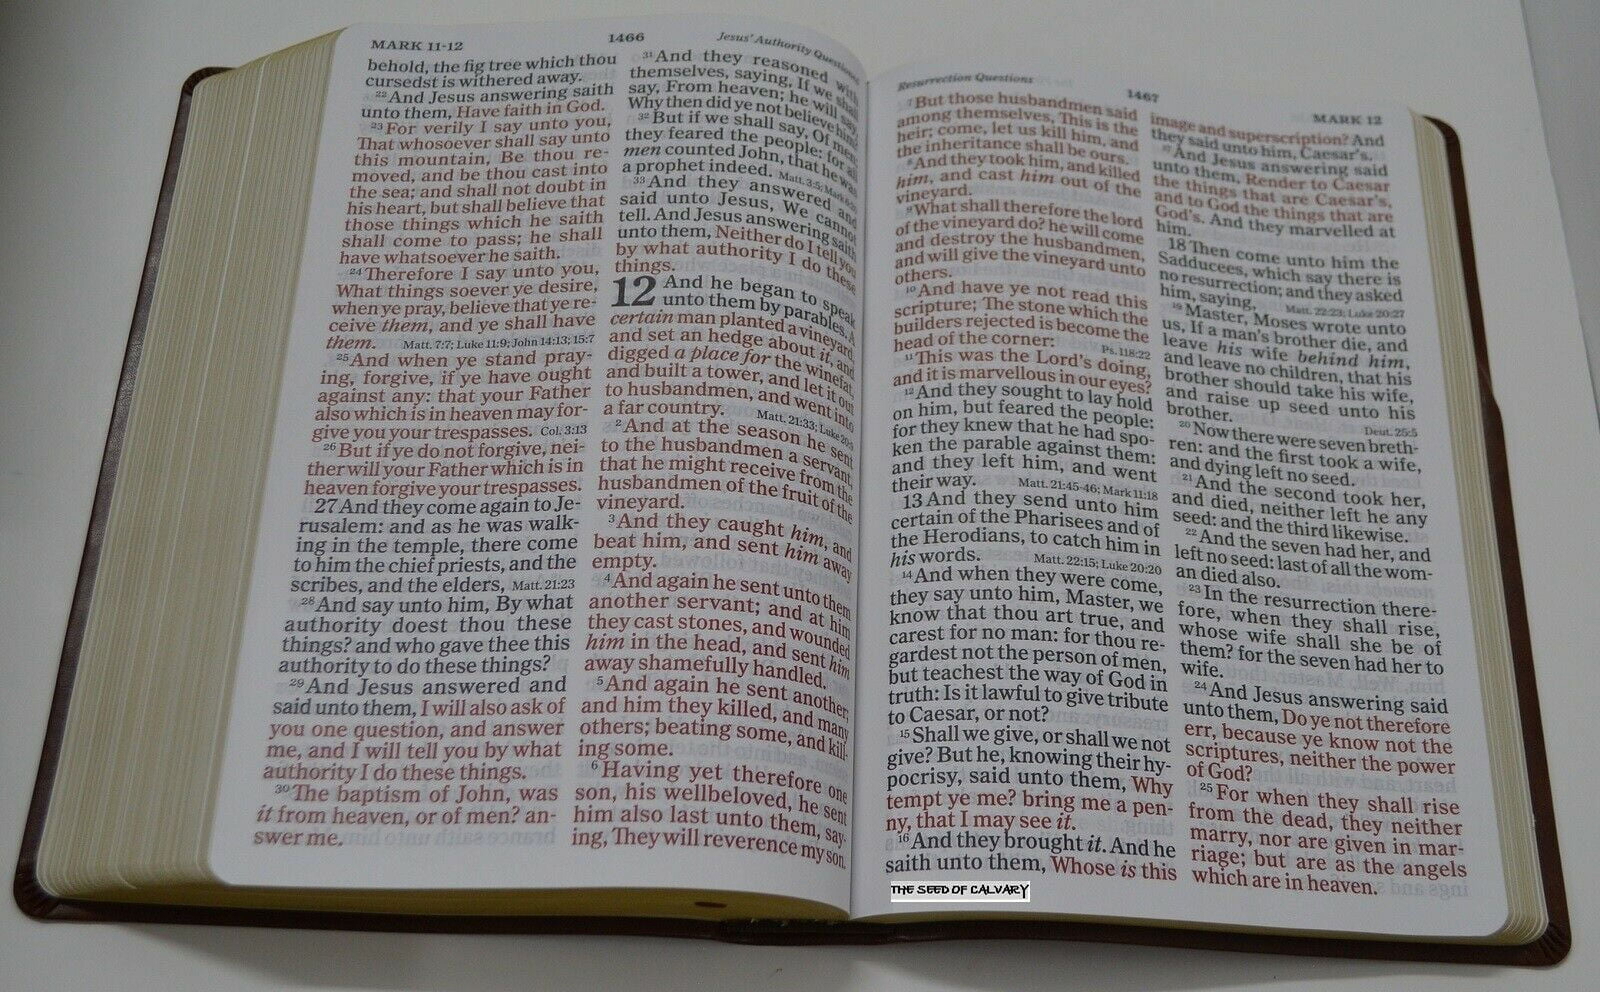 MARK 11-12
1466
Jesus' Authority Questioned
behold, the fig tree which thou
cursedst is withered away.
22 And Jesus answering saith
unto them, Have faith in God.
23 For verily I say unto you,
That whosoever shall say unto
this mountain, Be thou re-
moved, and be thou cast into
the sea; and shall not doubt in
his heart, but shall believe that
those things which he saith
shall come to pass; he shall
have whatsoever he saith.
24 Therefore I say unto you,
What things soever ye desire,
when ye pray, believe that ye re-
ceive them, and ye shall have
them. Matt. 7:7; Luke 11:9; John 14:13; 15:7
25 And when ye stand pray-
ing, forgive, if ye have ought
against any: that your Father
also which is in heaven may for-
give you your trespasses. Col. 3:13
26 But if ye do not forgive, nei-
ther will your Father which is in
heaven forgive your trespasses.
27 And they come again to Je-
rusalem: and as he was walk-
ing in the temple, there come
to him the chief priests, and the
scribes, and the elders, Matt. 21:23
28 And say unto him, By what
authority doest thou these
things? and who gave thee this
authority to do these things?
29 And Jesus answered and
said unto them, I will also ask of
you one question, and answer
me, and I will tell you by what
authority I do these things.
30 The baptism of John, was
it from heaven, or of men? an-
swer me.
31 And they reasoned with
themselves, saying, If we shall
say, From heaven; he will say,
Why then did ye not believe him?
32 But if we shall say, Of men;
they feared the people: for all
men counted John, that he was
a prophet indeed. Matt. 3:5; Mark 6:20
33 And they answered and
said unto Jesus, We cannot
tell. And Jesus answering saith
unto them, Neither do I tell you
by what authority I do these
things.
12 And he began to speak
unto them by parables. A
certain man planted a vineyard,
and set an hedge about it, and
digged a place for the winefat,
and built a tower, and let it out
to husbandmen, and went into
a far country. Matt. 21:33; Luke 20:9
2 And at the season he sent
to the husbandmen a servant,
that he might receive from the
husbandmen of the fruit of the
vineyard.
3 And they caught him, and
beat him, and sent him away
empty.
4 And again he sent unto them
another servant; and at him
they cast stones, and wounded
him in the head, and sent him
away shamefully handled.
5 And again he sent another;
and him they killed, and many
others; beating some, and kill-
ing some.
6 Having yet therefore one
son, his wellbeloved, he sent
him also last unto them, say-
ing, They will reverence my son.
Resurrection Questions
1467
MARK 12
7 But those husbandmen said
among themselves, This is the
heir; come, let us kill him, and
the inheritance shall be ours.
8 And they took him, and killed
him, and cast him out of the
vineyard.
9 What shall therefore the lord
of the vineyard do? he will come
and destroy the husbandmen,
and will give the vineyard unto
others.
10 And have ye not read this
scripture; The stone which the
builders rejected is become the
head of the corner: Ps. 118:22
11 This was the Lord's doing,
and it is marvellous in our eyes?
12 And they sought to lay hold
on him, but feared the people:
for they knew that he had spo-
ken the parable against them:
and they left him, and went
their way. Matt. 21:45-46; Mark 11:18
13 And they send unto him
certain of the Pharisees and of
the Herodians, to catch him in
his words. Matt. 22:15; Luke 20:20
14 And when they were come,
they say unto him, Master, we
know that thou art true, and
carest for no man: for thou re-
gardest not the person of men,
but teachest the way of God in
truth: Is it lawful to give tribute
to Caesar, or not?
15 Shall we give, or shall we not
give? But he, knowing their hy-
pocrisy, said unto them, Why
tempt ye me? bring me a pen-
ny, that I may see it.
16 And they brought it. And he
saith unto them, Whose is this
image and superscription? And
they said unto him, Caesar's.
17 And Jesus answering said
unto them, Render to Caesar
the things that are Caesar's,
and to God the things that are
God's. And they marvelled at
him.
18 Then come unto him the
Sadducees, which say there is
no resurrection; and they asked
him, saying, Matt. 22:23; Luke 20:27
19 Master, Moses wrote unto
us, If a man's brother die, and
leave his wife behind him,
and leave no children, that his
brother should take his wife,
and raise up seed unto his
brother. Deut. 25:5
20 Now there were seven breth-
ren: and the first took a wife,
and dying left no seed.
21 And the second took her,
and died, neither left he any
seed: and the third likewise.
22 And the seven had her, and
left no seed: last of all the wom-
an died also.
23 In the resurrection there-
fore, when they shall rise,
whose wife shall she be of
them? for the seven had her to
wife.
24 And Jesus answering said
unto them, Do ye not therefore
err, because ye know not the
scriptures, neither the power
of God?
25 For when they shall rise
from the dead, they neither
marry, nor are given in mar-
riage; but are as the angels
which are in heaven.
THE SEED OF CALVARY